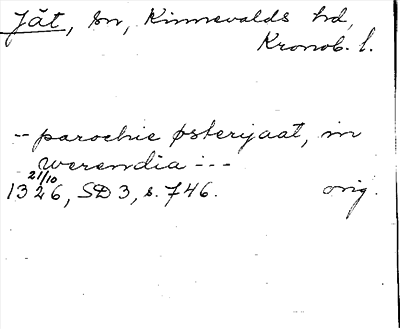 Jät, sn, Kinnevalds hd,
Kronob. l.
-- parochie østerjaat, in
Werendia ---
21/10
1326, SD 3, s. 746. orig.